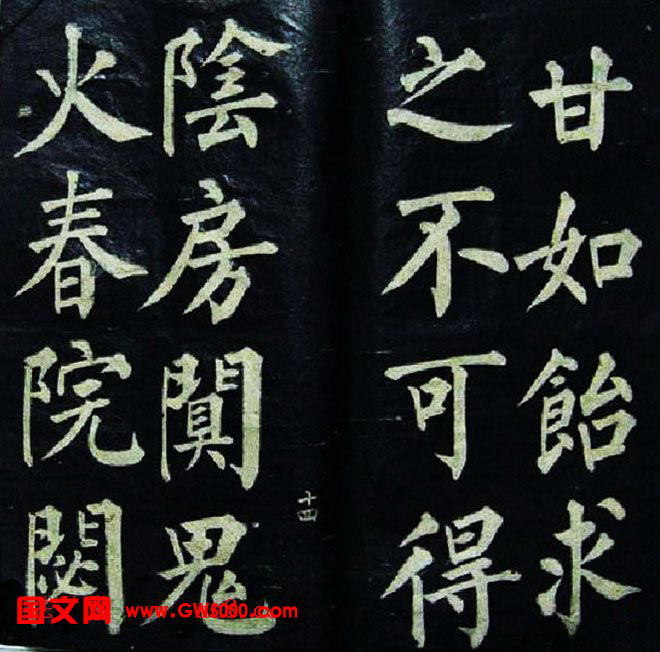 甘如飴求
之不可得
十四
陰房闃鬼
火春院閟
图文网 www.GW5000.com